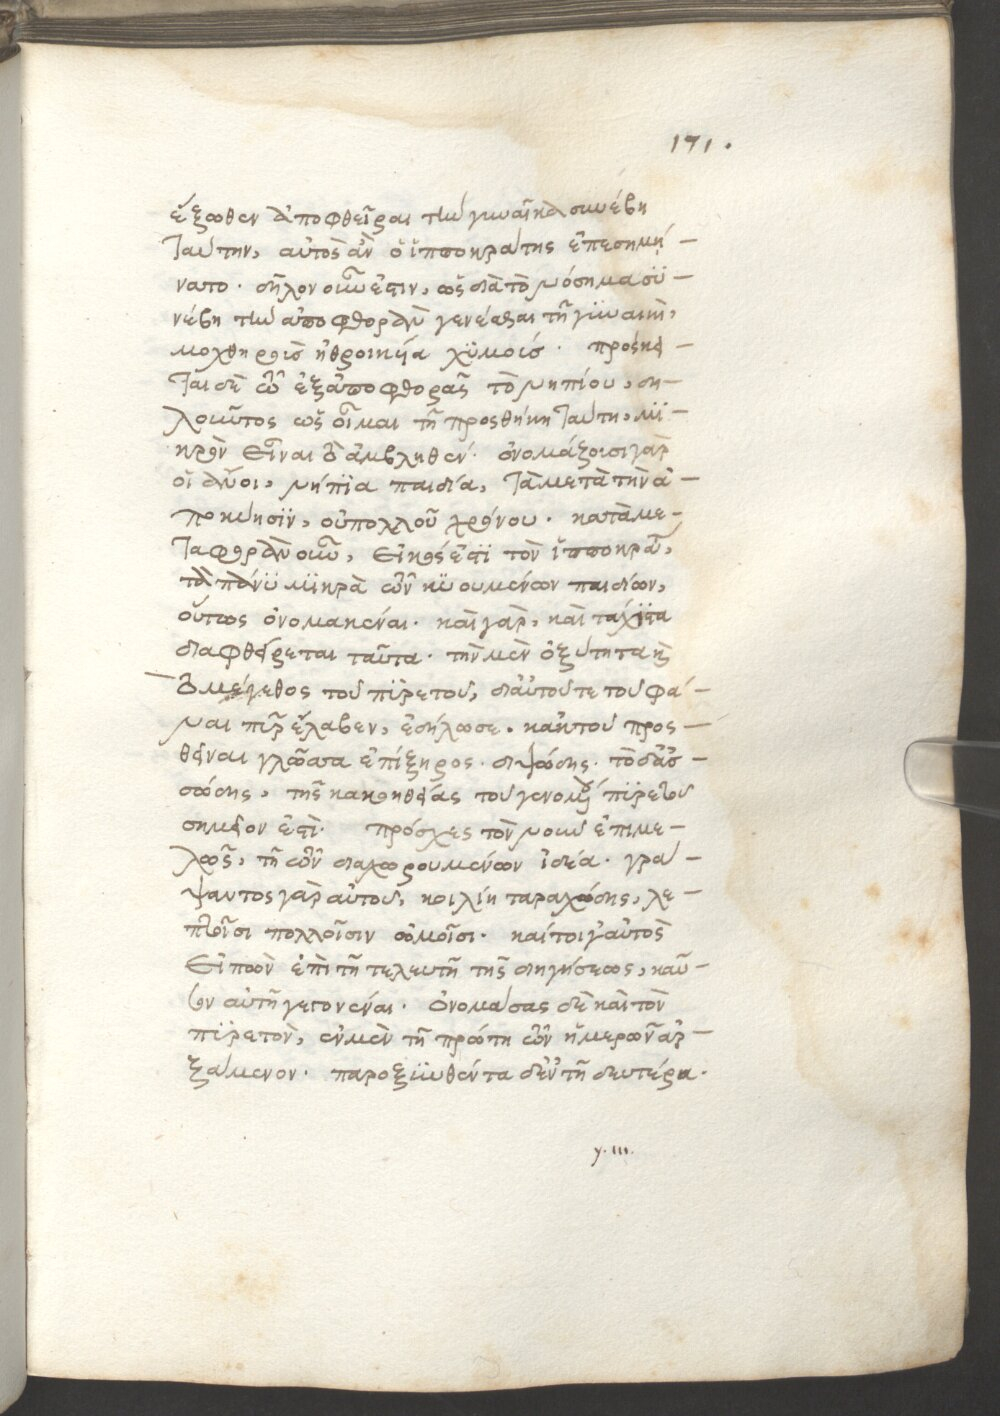 171.
ἔξωθεν ἀποφθεῖραι τὴν γυναῖκα συνέβη
ταύτην, αὐτὸς ἂν ὁ ἱπποκράτης ἐπεσημή-
νατο. δῆλον οὖν ἐστιν, ὡς διὰ τὸ νόσημα συ-
νέβη τὴν ἀποφθορὰν γενέσθαι τῆ γυναικὶ,
μοχθηροῖς ἠθροικυία χυμοῖς. πρόσκει-
ται δὲ τῶ ἐξ ἀποφθορᾶς τὸ νηπίου, δη-
λοῦντος ὡς οἶμαι τῆ προσθήκη ταύτη, μι-
κρὸν εἶναι τὸ ἀμβληθέν. ὀνομάζουσι γὰρ
οἱ νέοι, νήπια παιδία, τὰ μετὰ τὴν ἀ-
ποκύησιν, οὐ πολλοῦ χρόνου. κατὰ με-
ταφορὰν οὖν, εἰκός ἐστι τὸν ἱπποκράτην,
τὰ πάνυ μικρὰ τῶν κυουμένων παιδίων,
οὕτως ὀνομακέναι. καὶ γὰρ, καὶ τάχιστα
διαφθείρεται ταῦτα. τὴν μὲν ὀξύτητα καὶ
τὸ μέγεθος τοῦ πυρετοῦ, δι' αὐτοῦ τε τοῦ φά-
ναι πῦρ ἔλαβεν, ἐδήλωσε. κἀκ τοῦ προς-
θεῖναι γλῶσσα ἐπίξηρος. διψώδης. τὸ δ' ἀσ-
σώδης, τῆς κακοηθείας τοῦ γενομένου πυρετοῦ
σημεῖον ἐστὶ. πρόσχες τὸν νοῦν ἐπιμε-
λῶς, τῆ τῶν διαχωρουμένων ἰδέα. γρά-
ψαντος γὰρ αὐτοῦ, κοιλίη ταραχώδης, λε-
πτοῖσι πολλοῖσιν ὠμοῖσι. καίτοι γ' αὐτὸς
εἰπὼν ἐπὶ τῆ τελευτῆ τῆς διηγήσεως, καῦ-
σον αὐτῆ γεγονέναι. ὀνομάσας δὲ καὶ τὸν
πυρετὸν, ἐν μὲν τῆ πρώτη τῶν ἡμερῶν ἀρ-
ξάμενον. παροξυνθέντα δ' ἐν τῆ δευτέρα.
y. iii.